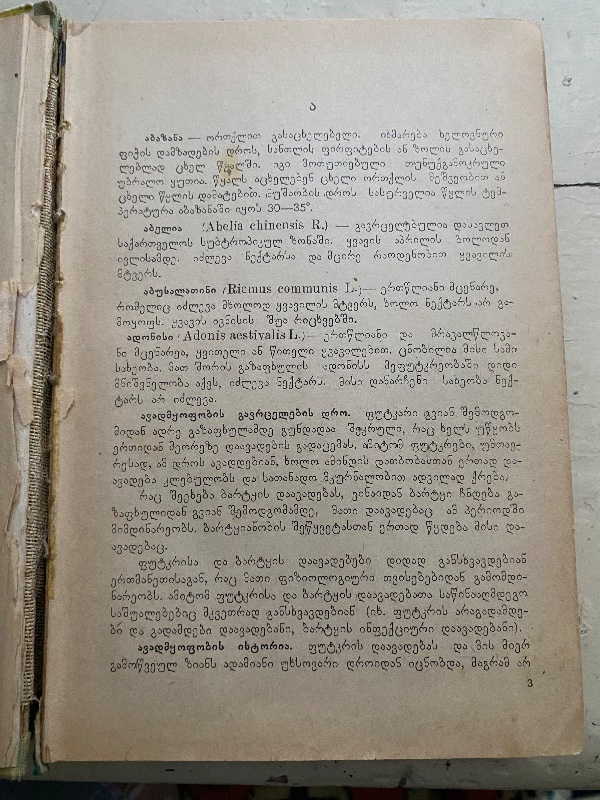 ა
აბაზანა — ორთქლით გასაცხელებელი. იხმარება ხელოვნური
ფიჭის დამზადების დროს, სანთლის ფირფიტების ან ზოლის გასაცხე-
ლებლად ცხელ წყალში. იგი მოთუთიებული თუნუქგამოკრული
უბრალო ყუთია. წყალს აცხელებენ ცხელი ორთქლის მეშვეობით ან
ცხელი წყლის დამატებით. მუშაობის დროს სასურველია წყლის ტემ-
პერატურა აბაზანაში იყოს 30—35°.
აბელია (Abelia chinensis R.) — გავრცელებულია დასავლეთ
საქართველოს სუბტროპიკულ ზონაში. ყვავის აპრილის ბოლოდან
ივლისამდე. იძლევა ნექტარსა და მცირე რაოდენობით ყვავილის
მტვერს.
აბუსალათინი (Ricmus communis L.)— ერთწლიანი მცენარე,
რომელიც იძლევა მხოლოდ ყვავილის მტვერს, ხოლო ნექტარს არ გა-
მოყოფს. ყვავის ივნისის შუა რიცხვებში.
ადონისი (Adonis aestivalis L.)— ერთწლიანი და მრავალწლოვა-
ნი მცენარეა, ყვითელი ან წითელი ყვავილებით. ცნობილია მისი სამი
სახეობა. მათ შორის გაზაფხულის ადონისს მეფუტკრეობაში დიდი
მნიშვნელობა აქვს, იძლევა ნექტარს. მისი დანარჩენი სახეობა ნექ-
ტარს არ იძლევა.
ავადმყოფობის გავრცელების დრო. ფუტკარი გვიან შემოდგო-
მიდან ადრე გაზაფხულამდე გუნდადაა შეკრული, რაც ხელს უწყობს
ერთიდან მეორეზე დაავადების გადაცემას. ამიტომ ფუტკრები, უმთავ-
რესად, ამ დროს ავადდებიან, ხოლო ამინდის დათბობასთან ერთად და-
ავადება კლებულობს და სათანადო მკურნალობით ადვილად ქრება.
რაც შეეხება ბარტყის დაავადებას, ვინაიდან ბარტყი ჩნდება გა-
ზაფხულიდან გვიან შემოდგომამდე, მათი დაავადებაც ამ პერიოდში
მიმდინარეობს. ბარტყიანობის შეწყვეტასთან ერთად წყდება მისი და-
ავადებაც.
ფუტკრისა და ბარტყის დაავადებები დიდად განსხვავდებიან
ერთმანეთისაგან, რაც მათი ფიზიოლოგიური თვისებებიდან გამომდი-
ნარეობს. ამიტომ ფუტკრისა და ბარტყის დაავადებათა საწინააღმდეგო
საშუალებებიც მკვეთრად განსხვავდებიან (იხ. ფუტკრის არაგადამდე-
ბი და გადამდები დაავადებანი, ბარტყის ინფექციური დაავადებანი).
ავადმყოფობის ისტორია. ფუტკრის დაავადებას და მის მიერ
გამოწვეულ ზიანს ადამიანი უხსოვარი დროიდან იცნობდა, მაგრამ არ
3